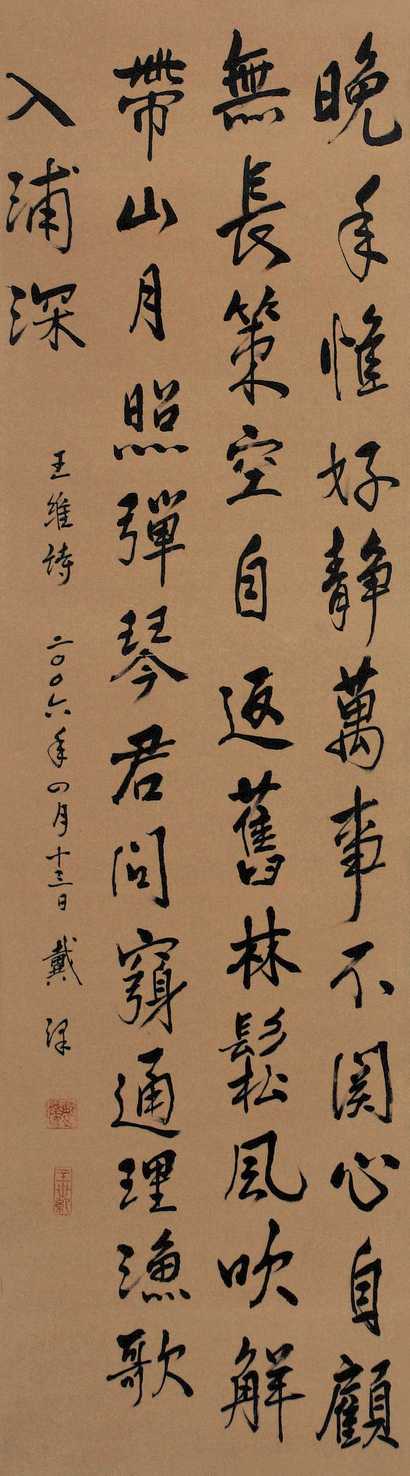 晚年惟好静萬事不関心自顧
無長策空自返舊林鬆風吹解
帶山月照彈琴君問窮通理漁歌
入浦深
王維詩 二〇〇六年四月十三日 戴泽